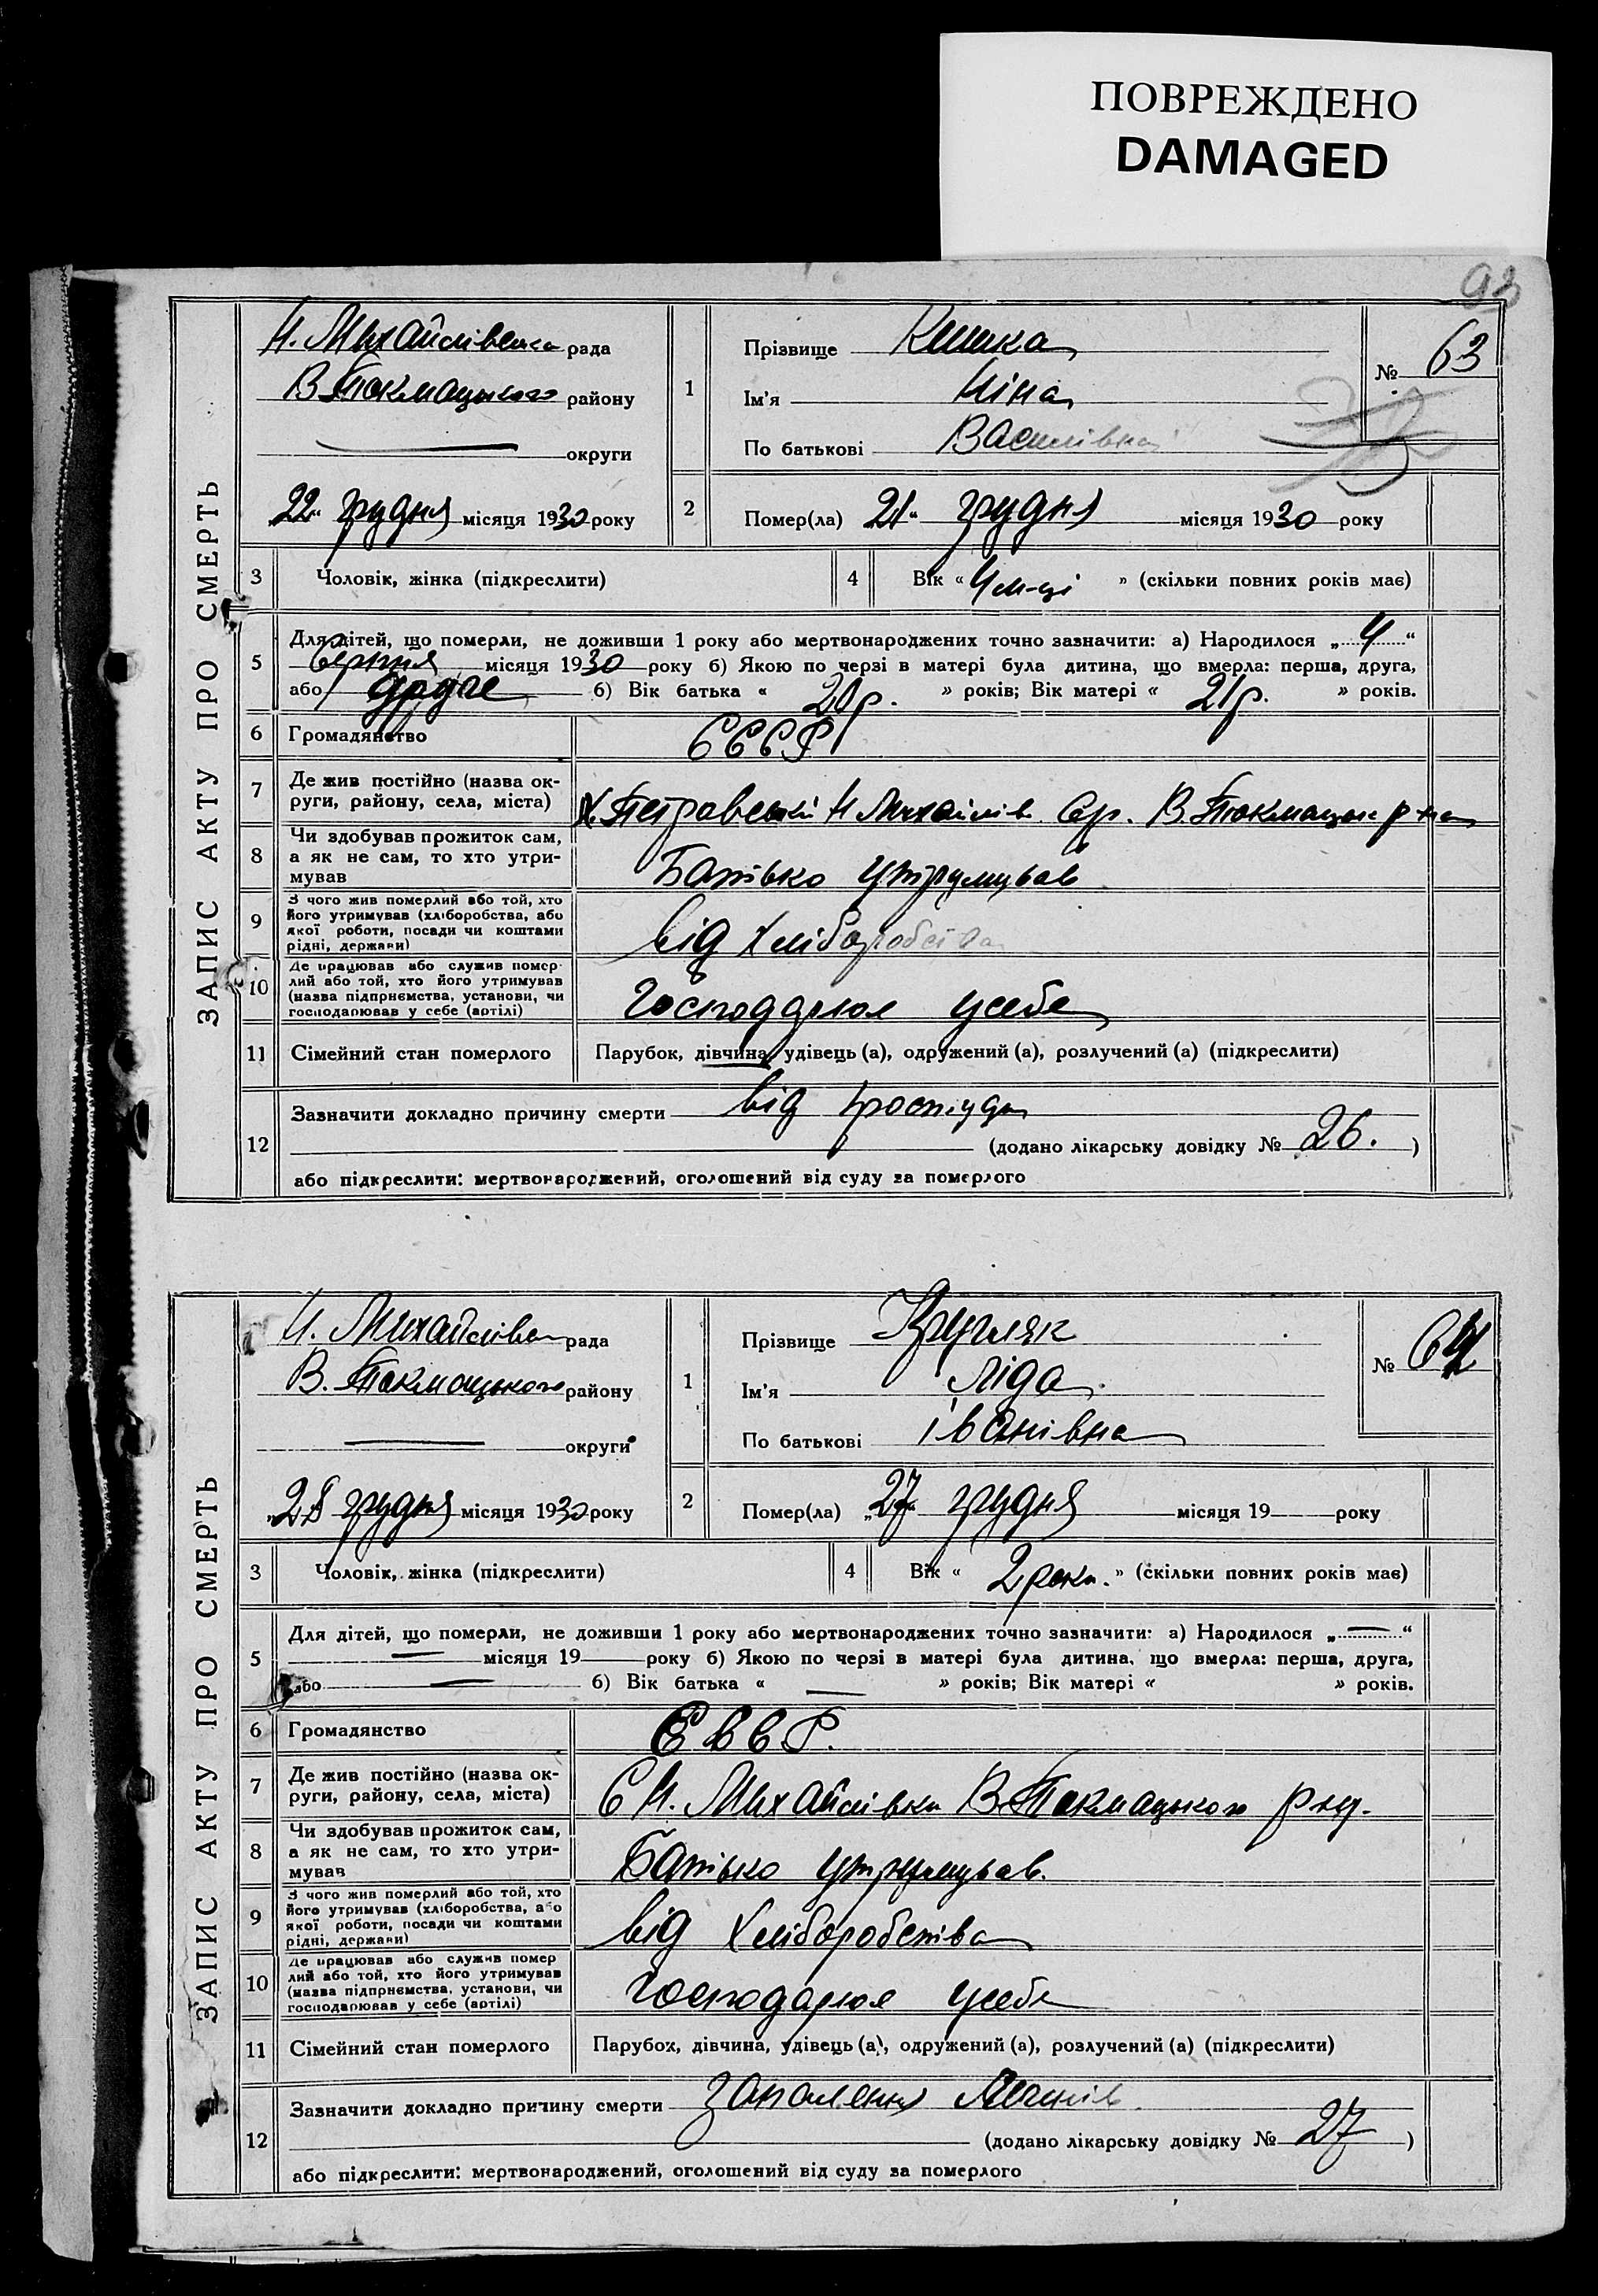 ПОВРЕЖДЕНО
DAMAGED
93
ЗАПИС АКТУ ПРО СМЕРТЬ
Н. Михайлівська рада
В Токмацького району
округи
22 грудня місяця 1930 року
1
Прізвище Кишка
Ім'я Ніна
По батькові Василівна
№ 63
2
Помер(ла) 21 грудня місяця 1930 року
3 Чоловік, жінка (підкреслити)
4 Вік « 4 м-ці » (скільки повних років має)
5 Для дітей, що померли, не доживши 1 року або мертвонароджених точно зазначити: а) Народилося „ 4 “
Серпня місяця 1930 року б) Якою по черзі в матері була дитина, що вмерла: перша, друга,
або друге б) Вік батька « 20 р. » років; Вік матері « 21 р. » років.
6 Громадянство СССР
7 Де жив постійно (назва ок-
руги, району, села, міста) Х. Петровський Н Михайлів. Ср. В. Токмацьк р-на
8 Чи здобував прожиток сам,
а як не сам, то хто утри-
мував Батько утримував
9 З чого жив померлий або той, хто
його утримував (хліборобства, або
якої роботи, посади чи коштами
рідні, держави) від хліборобства
10 Де працював або служив помер-
лий або той, хто його утримував
(назва підприємства, установи, чи
господарював у себе (артілі) Господарює усебе
11 Сімейний стан померлого Парубок, дівчина, удівець (а), одружений (а), розлучений (а) (підкреслити)
12 Зазначити докладно причину смерти від простуди
(додано лікарську довідку № 26. )
або підкреслити: мертвонароджений, оголошений від суду за померлого
ЗАПИС АКТУ ПРО СМЕРТЬ
Н. Михайлівська рада
В. Токмацького району
округи
„28 грудня місяця 1930 року
1
Прізвище Кругляк
Ім'я Ліда
По батькові Іванівна
№ 64
2
Помер(ла) „27“ грудня місяця 19 року
3 Чоловік, жінка (підкреслити)
4 Вік « 2 роки. » (скільки повних років має)
5 Для дітей, що померли, не доживши 1 року або мертвонароджених точно зазначити: а) Народилося „ — “
— місяця 19 року б) Якою по черзі в матері була дитина, що вмерла: перша, друга,
або — б) Вік батька « — » років; Вік матері « » років.
6 Громадянство СССР.
7 Де жив постійно (назва ок-
руги, району, села, міста) С Н. Михайлівка В. Токмацького р-ну.
8 Чи здобував прожиток сам,
а як не сам, то хто утри-
мував Батько утримував.
9 З чого жив померлий або той, хто
його утримував (хліборобства, або
якої роботи, посади чи коштами
рідні, держави) від хліборобства
10 Де працював або служив помер
лий або той, хто його утримував
(назва підприємства, установи, чи
господарював у себе (артілі) Господарює усебе
11 Сімейний стан померлого Парубок, дівчина, удівець (а), одружений (а), розлучений (а) (підкреслити)
12 Зазначити докладно причину смерти запалення легенів.
(додано лікарську довідку № 27 )
або підкреслити: мертвонароджений, оголошений від суду за померлого